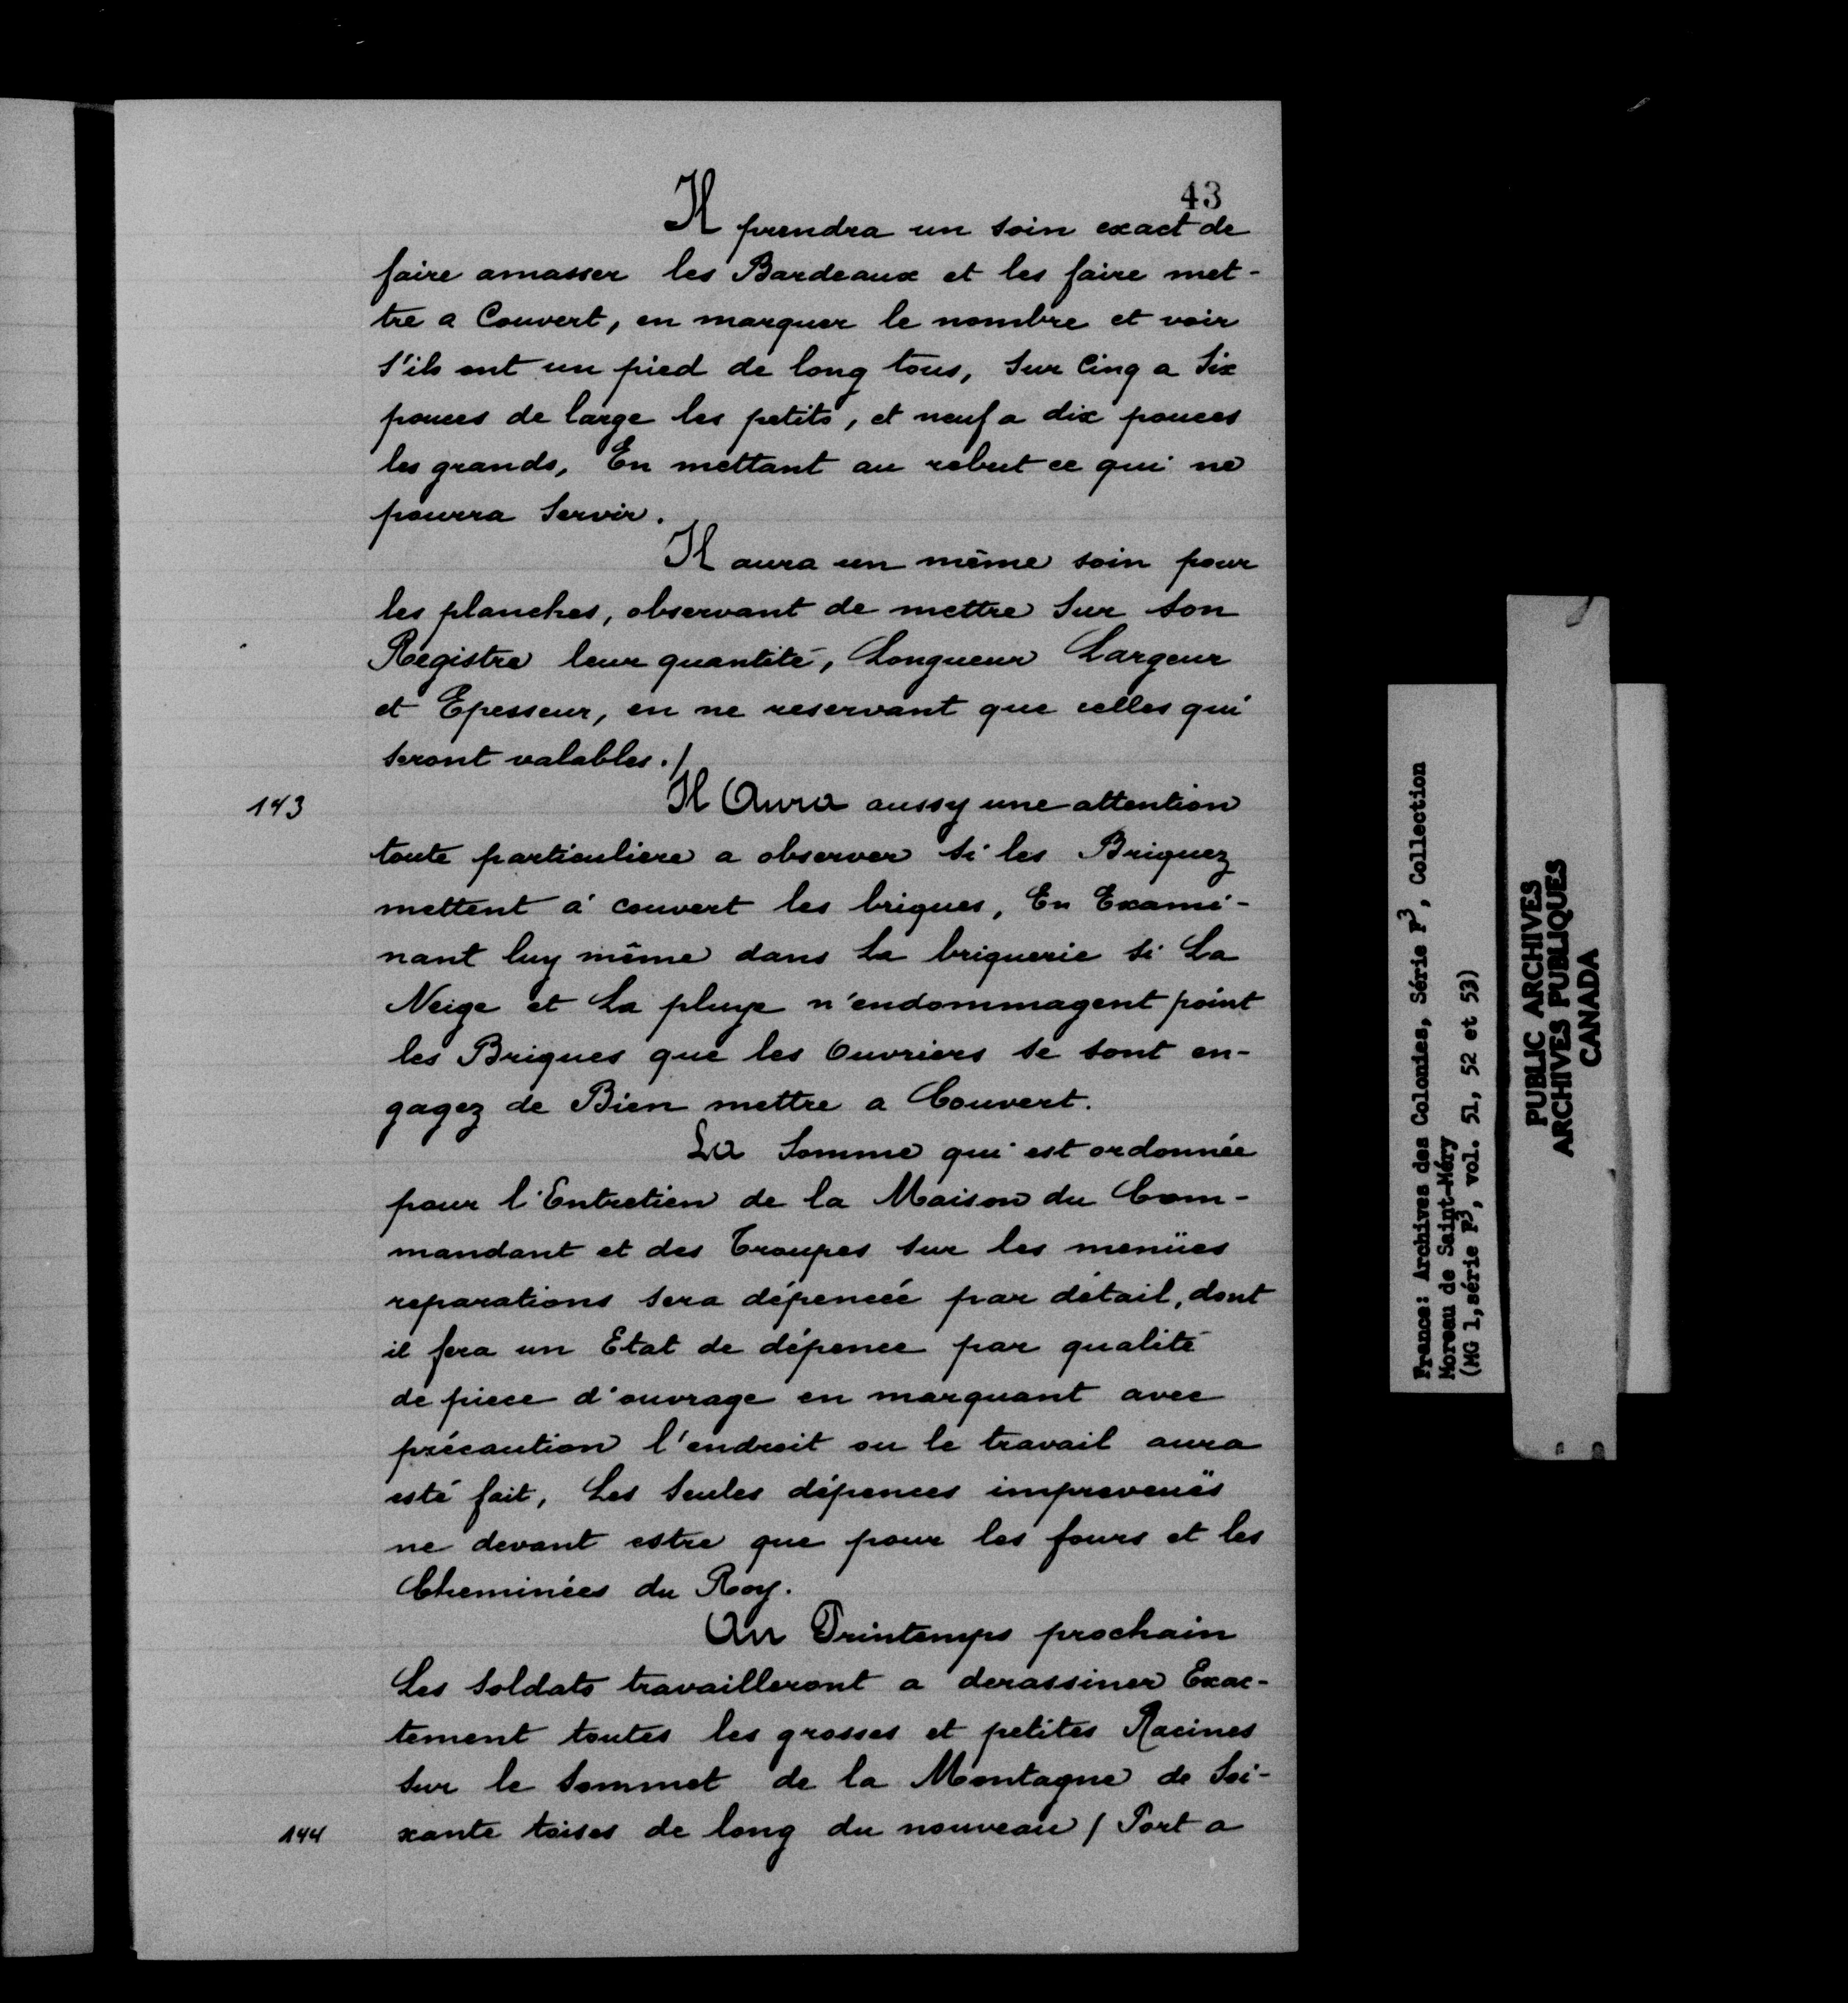 43
Il prendra un soin exact de
faire amasser les Bardeaux et les faire met-
tre a Couvert, en marquer le nombre et voir
s'ils ont un pied de long tous, sur Cinq a Six
pouces de large les petits, et neuf a dix pouces
les grands, En mettant au rebut ce qui ne
pourra servir.
Il aura un même soin pour
les planches, observant de mettre sur son
Registre leur quantité, Longueur Largeur
et Epesseur, en ne reservant que celles qui
seront valables./
143
Il Aura aussy une attention
toute particuliere a observer si les Briquez
mettent à couvert les briques, En Exami-
nant luy même dans la briquerie si La
Neige et La pluye n'endommagent point
les Briques que les Ouvriers se sont en-
gagez de Bien mettre a Couvert.
La Somme qui est ordonnée
pour l'Entretien de la Maison du Com-
mandant et des Troupes sur les menües
reparations sera dépencée par détail, dont
il fera un Etat de dépence par qualité
de piece d'ouvrage en marquant avec
précaution l'endroit ou le travail aura
esté fait, Les Seules dépences imprevenës
ne devant estre que pour les fours et les
Cheminées du Roy.
Au Printemps prochain
Les Soldats travailleront a derassiner Exac-
tement toutes les grosses et petites Racines
sur le Sommet de la Montagne de Soi-
144
xante toises de long du nouveau / Port a
France: Archives des Colonies, Série F3, Collection
Moreau de Saint-Méry
(MG 1, série F3, vol. 51, 52 et 53)
PUBLIC ARCHIVES
ARCHIVES PUBLIQUES
CANADA